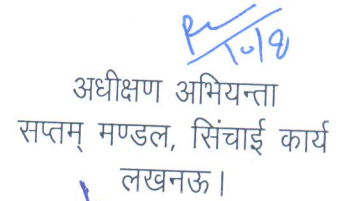 अधीक्षण अभियन्ता
सप्तम् मण्डल, सिंचाई कार्य
लखनऊ।